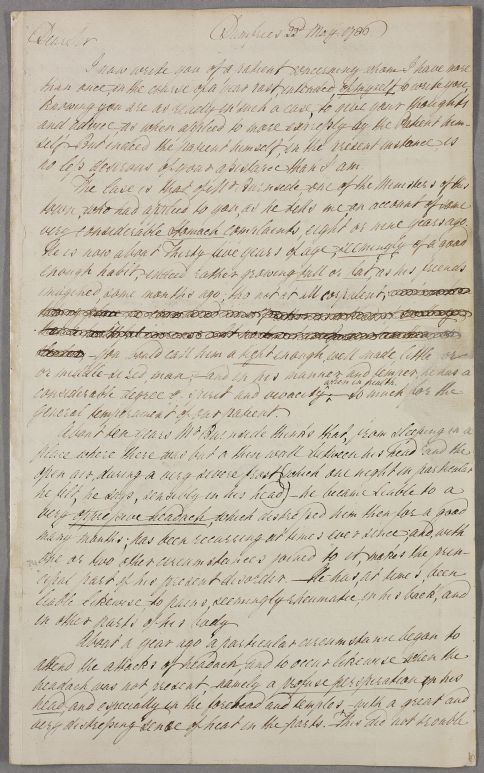 Dear Sir Dumfries 22d May 1786
I now write you of a Patient concerning whom I have more
than once, in the course of a year past intended of myself to write you,
knowing you are as ready in such a case, to give your thoughts
and advice, as when applied to more expressly by the Patient him-
self. But indeed the Patient himself, in the present instance, is
no less desirous of your assistance than I am.
The Case is that of Mr Burnside, one of the Ministers of this
town, who had applied to you, as he tells me, on account of some
very considerable stomach complaints, eight or nine years ago.
He is now about Thirty five years of age, seemingly of a good
enough habit, indeed rather growing full or fat, as his friends
imagined some months ago, tho not at all corpulent,
you would call him a tight enough, well made little or
or middle sized man, and in his manner and temper, he has a
considerable degree of spirit and vivacity, when in health. So much for the
general temperament of our patient.
About ten years Mr Burnside thinks that, from sleeping in a
place where there was but a thin wall between his head and the
open air, during a very severe frost (which one night in particular
he felt, he says, sensibly in his head) he became liable to a
very oppressive headach, which distressed him then for a good
many months; has been recurring at times ever since; and, with
one or two other circumstances joined to it, makes the prin-
cipal part of his present disorder. He has, at times, been
liable likewise to pains, seemingly rheumatic, in his back, and
in other parts of his body.
About a year ago a particular circumstance began to
attend the attacks of headach, and to occur likewise when the
headach was not present, namely a profuse perspiration in his
head, and especially in the forehead and temples, with a great and
very distressing sense of heat in the parts. This did not trouble